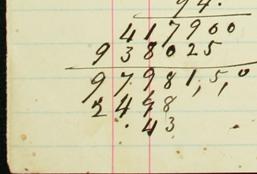 94.
417900
938025
97981,5,0
2448
.43